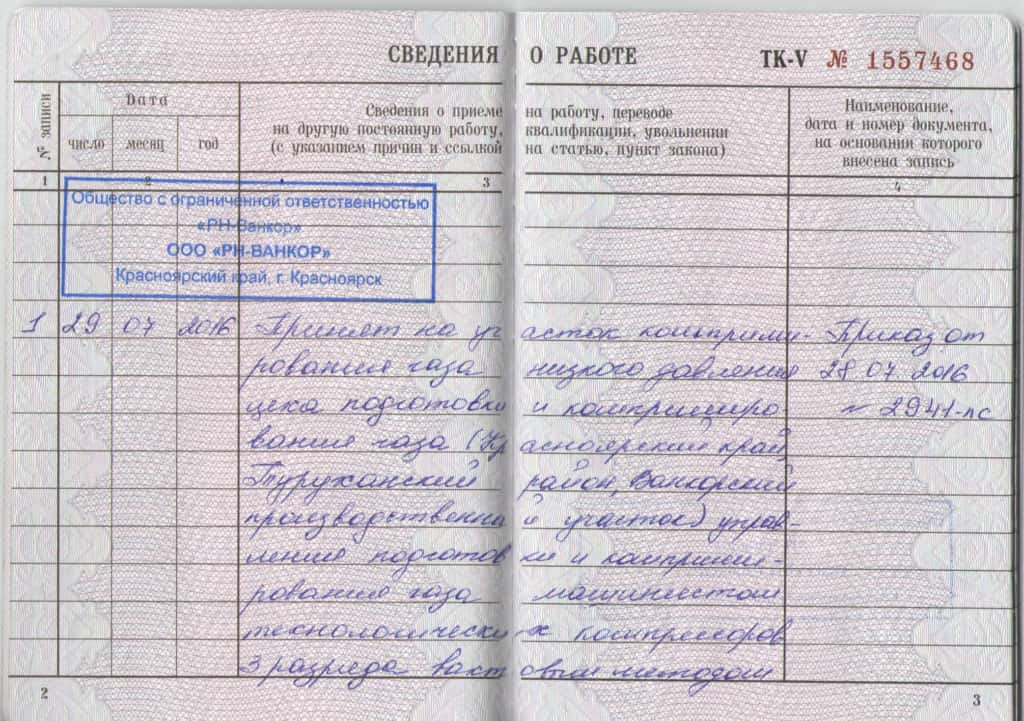 СВЕДЕНИЯ О РАБОТЕ ТК-V № 1557468
№ записи
Дата
число месяц год
Сведения о приеме на работу, переводе
на другую постоянную работу, квалификации, увольнении
(с указанием причин и ссылкой на статью, пункт закона)
Наименование,
дата и номер документа,
на основании которого
внесена запись
1 2 3 4
Общество с ограниченной ответственностью
«РН-Ванкор»
ООО «РН-ВАНКОР»
Красноярский край, г. Красноярск
1 29 07 2016 Принят на участок комприми- Приказ от
рования газа низкого давления 28 07 2016
цеха подготовки и компримиро- № 2941-лс
вания газа (Красноярский край,
Туруханский район, Ванкорский
производственный участок) управ-
ления подготовки и комприми-
рования газа машинистом
технологических компрессоров
3 разряда вахтовым методом
2 3